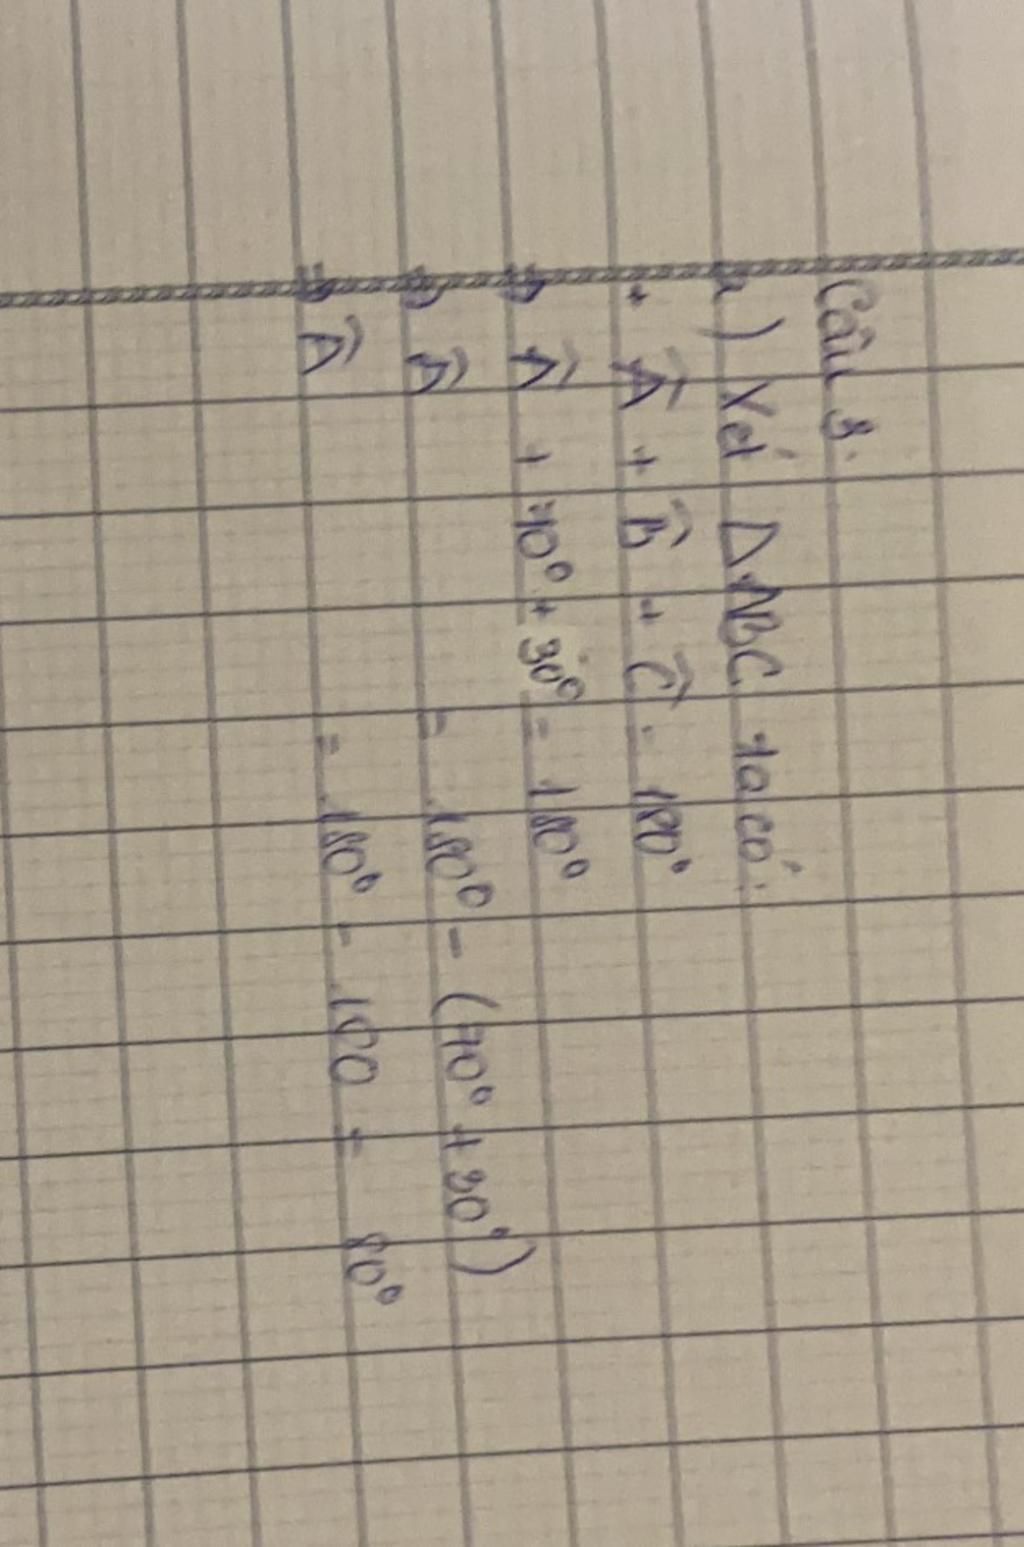 Câu 3.
a) Xét ΔABC ta có:
+ Â + B̂ + Ĉ = 180°
⇒ Â + 70° + 30° = 180°
⇒ Â = 180° - (70° + 30°)
⇒ Â = 180° - 100 = 80°